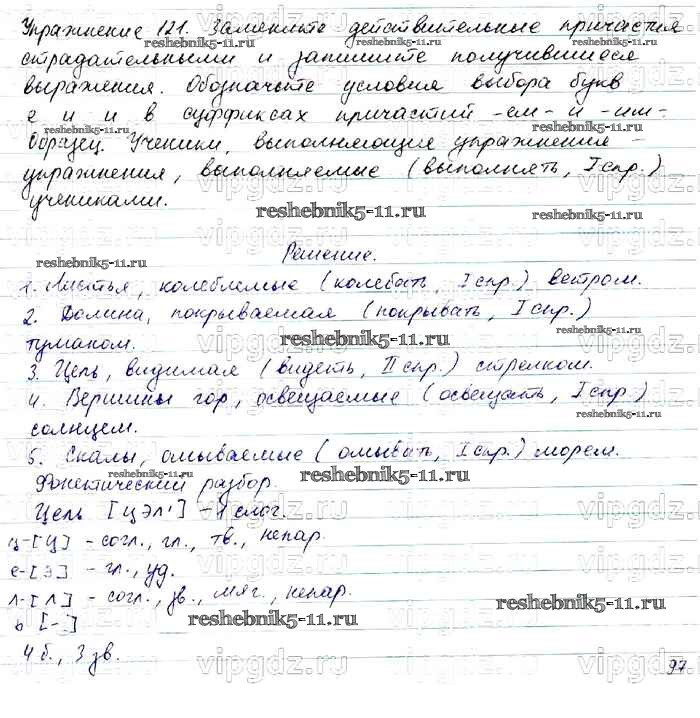 Упражнение 121. Замените действительные причастия
страдательными и запишите получившиеся
выражения. Обозначьте условия выбора букв
е и и в суффиксах причастий -ем- и -им-.
Образец. Ученики, выполняющие упражнение -
упражнения, выполняемые (выполнять, I спр.)
учениками.
Решение.
1. Листья, колеблемые (колебать, I спр.) ветром.
2. Долина, покрываемая (покрывать, I спр.)
туманом.
3. Цель, видимая (видеть, II спр.) стрелком.
4. Вершины гор, освещаемые (освещать, I спр.)
солнцем.
5. Скалы, омываемые (омывать, I спр.) морем.
Фонетический разбор.
Цель [цэл'] - 1 слог.
ц-[ц] - согл., гл., тв., непар.
е-[э] - гл., уд.
л-[л] - согл., зв., мяг., непар.
ь [-]
4 б., 3 зв.
97
reshebnik5-11.ru
vipgdz.ru